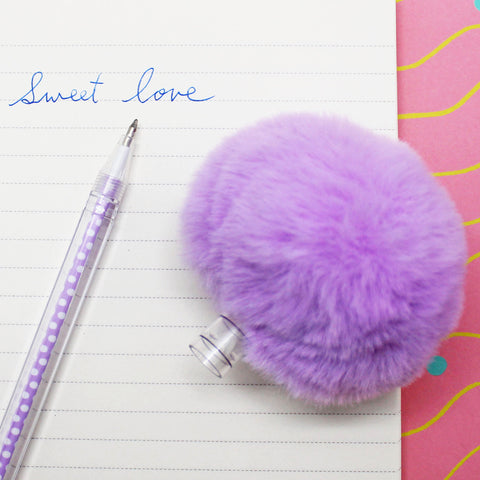 Sweet love